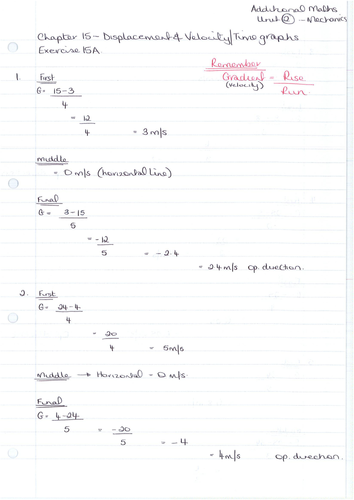 Additional Maths
Unit ② - Mechanics
Chapter 15 - Displacement & Velocity/Time graphs
Exercise 15A.
Remember
Gradient = Rise
(velocity) Run
1. First
G = 15-3
4
= 12
4
= 3m/s
Middle
= 0m/s (horizontal line)
Final
G = 3-15
5
= -12
5
= -2.4
= 2.4m/s op. direction.
2. First
G = 24-4
4
= 20
4
= 5m/s
Middle → Horizontal - 0m/s.
Final
G = 4-24
5
= -20
5
= -4
= 4m/s op. direction.